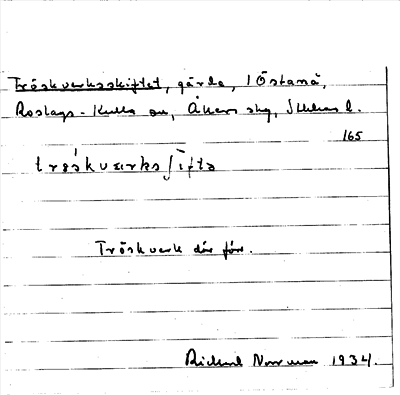 Tröskverksskiftet, gärde, i Östanå,
Roslags-Kulla sn, Åkers skg, Sthlms l.
165
trøskværksʃifta
Tröskverk där förr.
Rickard Norrman 1934.